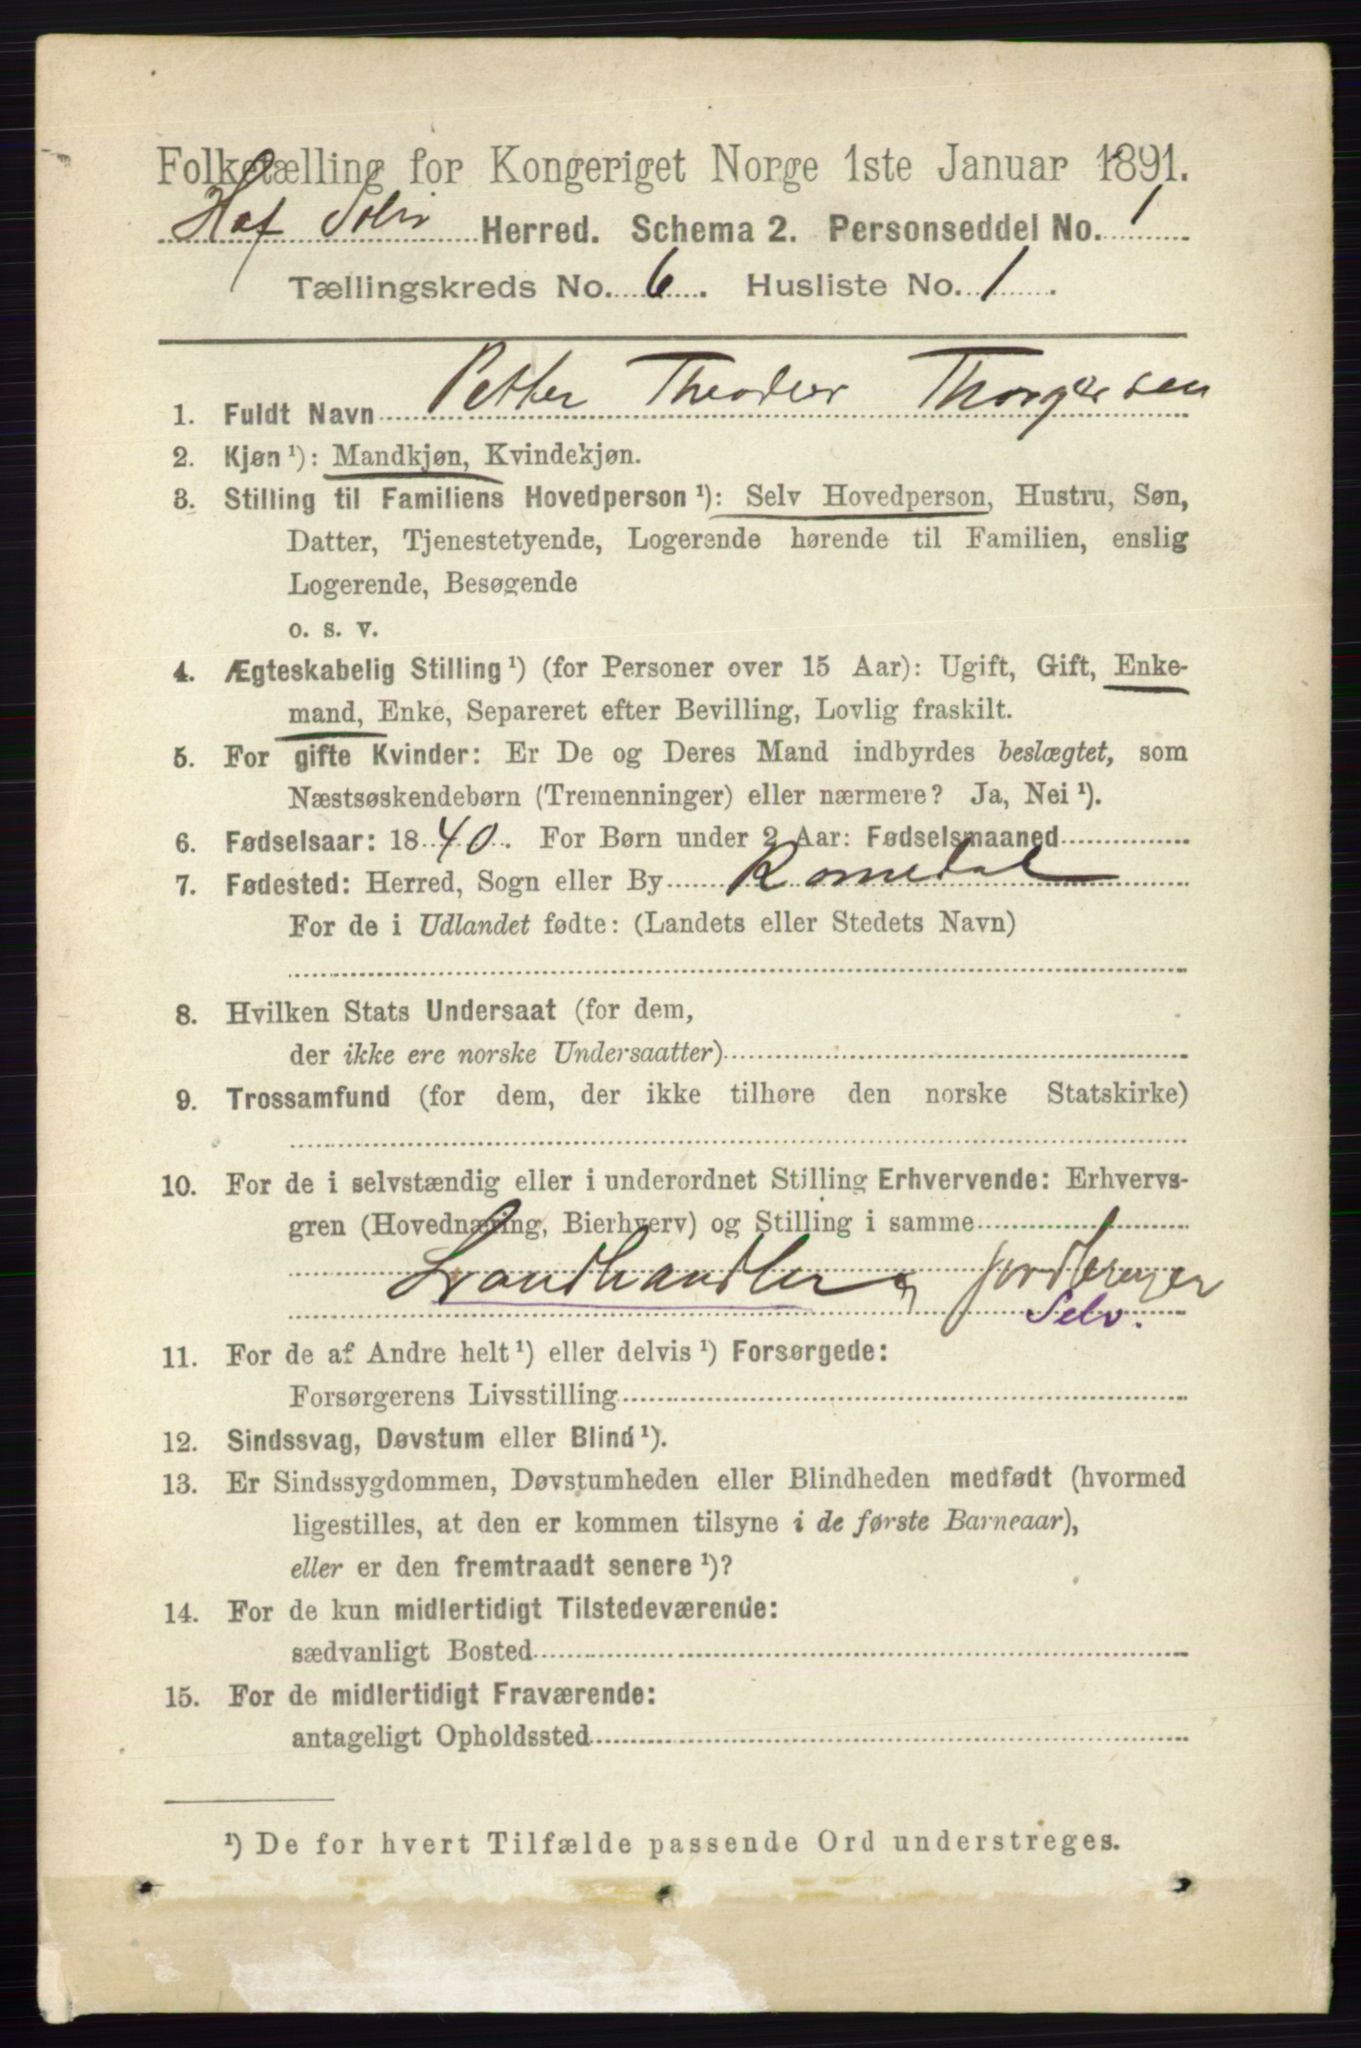 Folketælling for Kongeriget Norge 1ste Januar 1891.
Hof Solør Herred. Schema 2. Personseddel No. 1
Tællingskreds No. 6. Husliste No. 1.
1. Fuldt Navn Petter Theodor Thorgersen
2. Kjøn ¹): Mandkjøn, Kvindekjøn.
3. Stilling til Familiens Hovedperson ¹): Selv Hovedperson, Hustru, Søn,
Datter, Tjenestetyende, Logerende hørende til Familien, enslig
Logerende, Besøgende
o. s. v.
4. Ægteskabelig Stilling ¹) (for Personer over 15 Aar): Ugift, Gift, Enke-
mand, Enke, Separeret efter Bevilling, Lovlig fraskilt.
5. For gifte Kvinder: Er De og Deres Mand indbyrdes beslægtet, som
Næstsøskendebørn (Tremenninger) eller nærmere? Ja, Nei ¹).
6. Fødselsaar: 1840. For Børn under 2 Aar: Fødselsmaaned
7. Fødested: Herred, Sogn eller By Romedal
For de i Udlandet fødte: (Landets eller Stedets Navn)
8. Hvilken Stats Undersaat (for dem,
der ikke ere norske Undersaatter)
9. Trossamfund (for dem, der ikke tilhøre den norske Statskirke)
10. For de i selvstændig eller i underordnet Stilling Erhvervende: Erhvervs-
gren (Hovednæring, Bierhverv) og Stilling i samme
Landhandler og jordbruger
Selv.
11. For de af Andre helt ¹) eller delvis ¹) Forsørgede:
Forsørgerens Livsstilling
12. Sindssvag, Døvstum eller Blind ¹).
13. Er Sindssygdommen, Døvstumheden eller Blindheden medfødt (hvormed
ligestilles, at den er kommen tilsyne i de første Barneaar),
eller er den fremtraadt senere ¹)?
14. For de kun midlertidigt Tilstedeværende:
sædvanligt Bosted
15. For de midlertidigt Fraværende:
antageligt Opholdssted
¹) De for hvert Tilfælde passende Ord understreges.